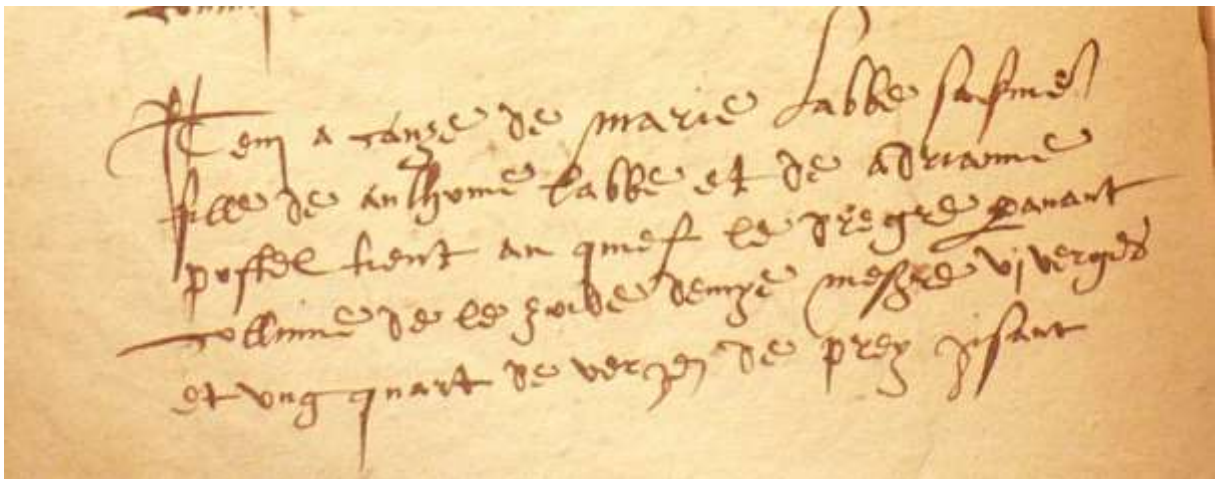 Item a cause de marie Labbe sa feme
fille de anthoine Labbe et de adrianne
postel tient au quief le pregre pavant
colline de le demye mesure vi vergues
et ung quart de verge de prey gisant